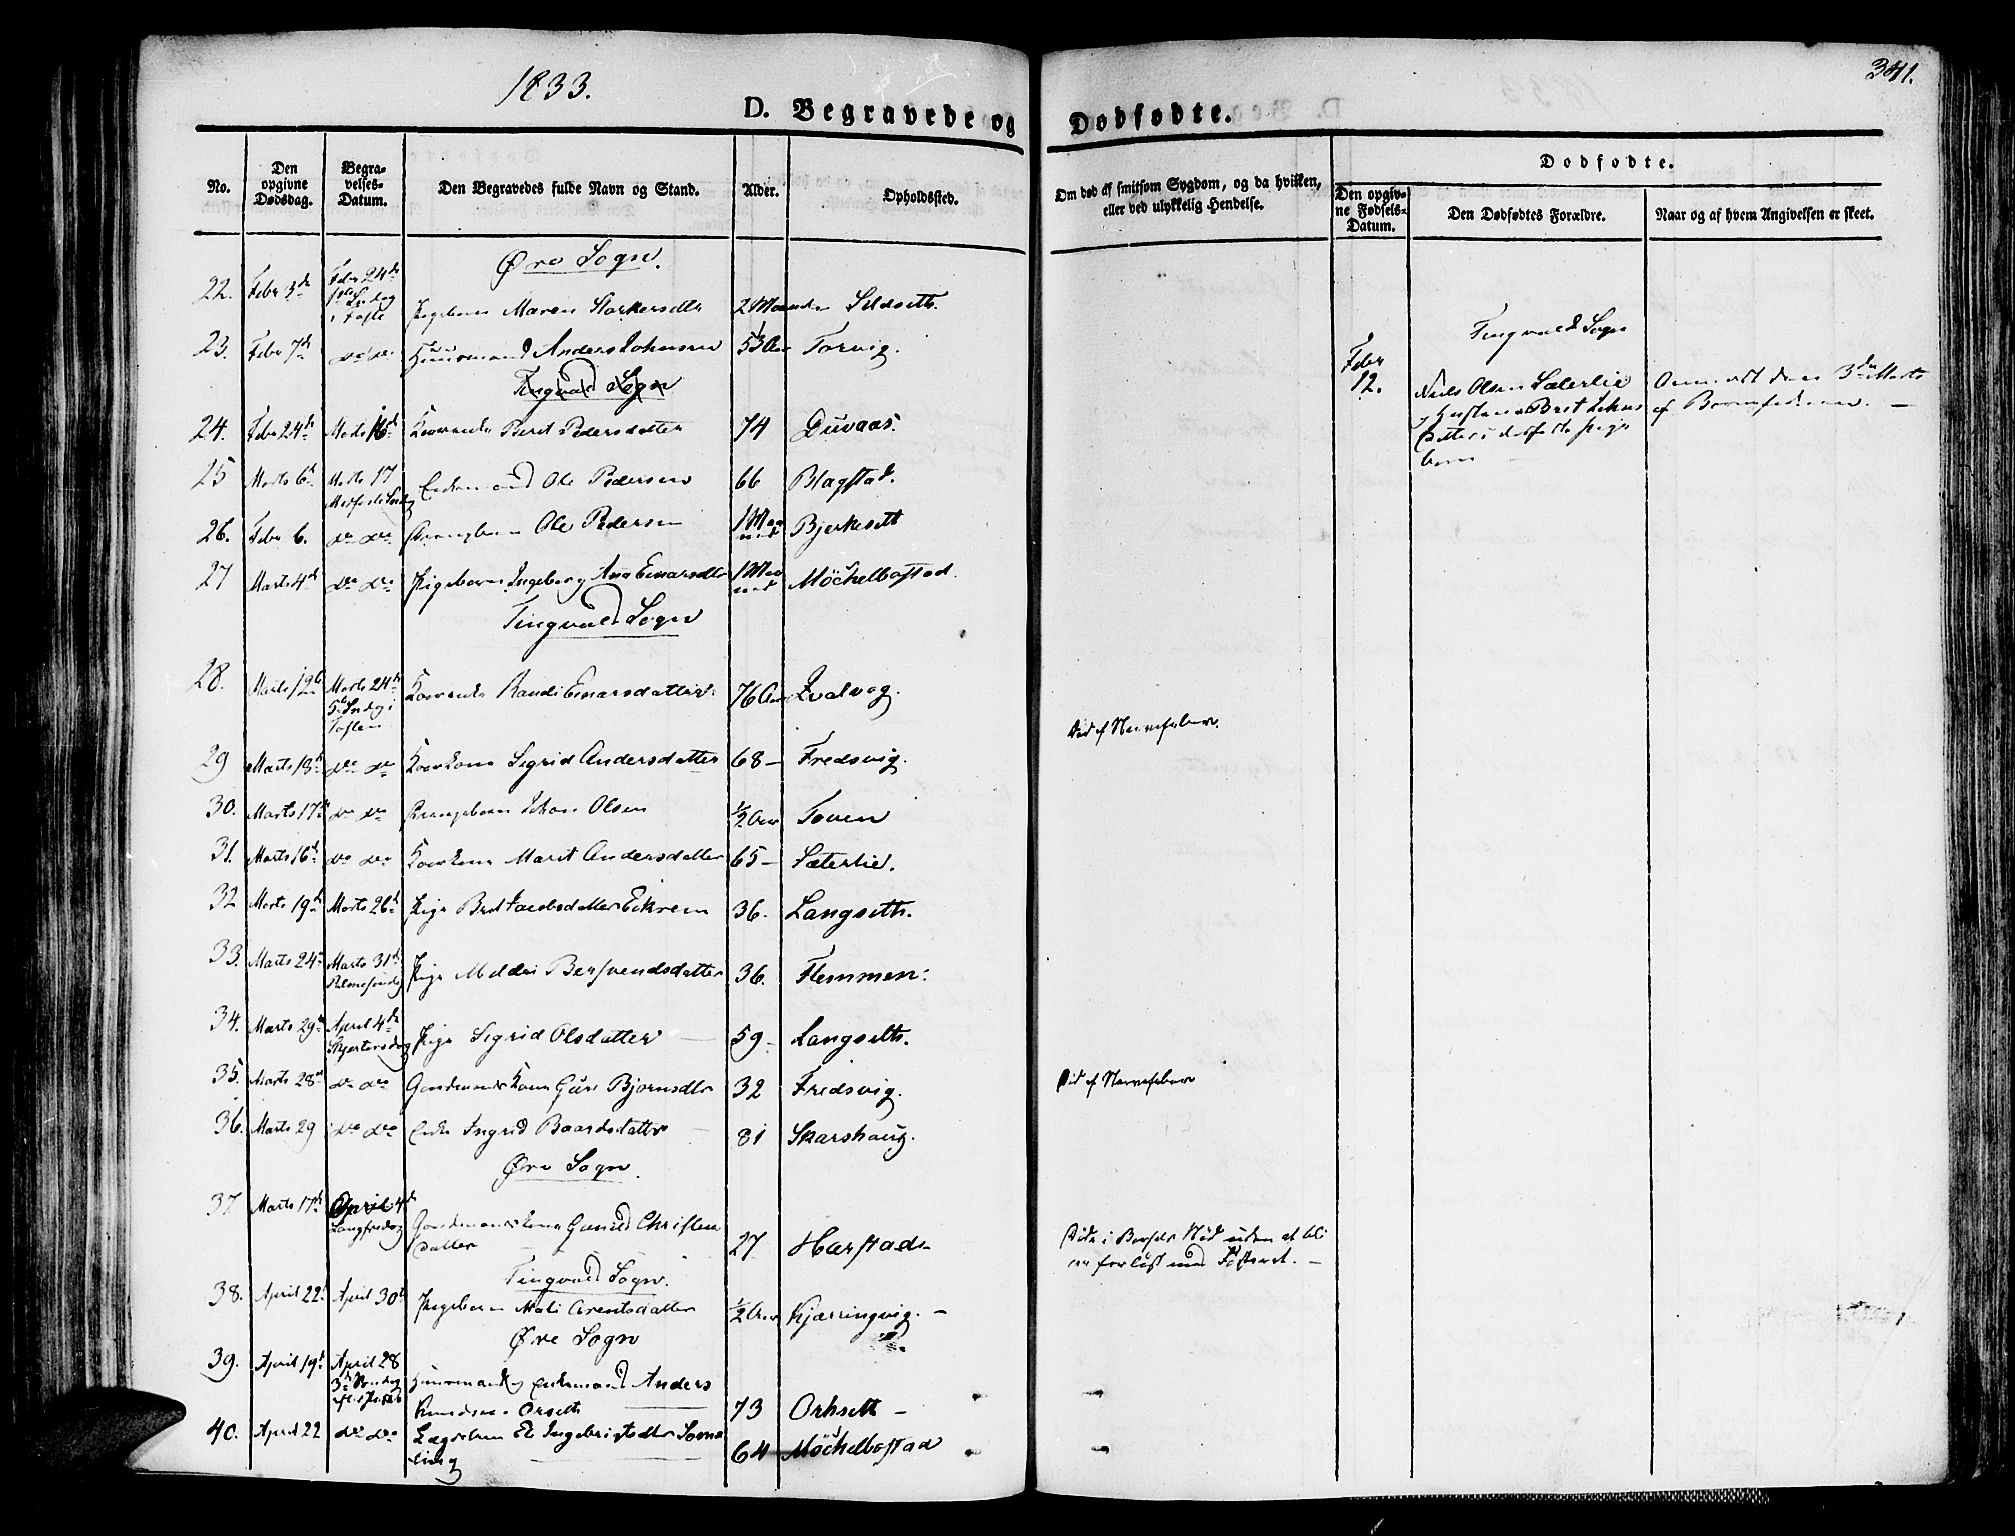 1833.
341.
D. Begravede og Dødfødte.
No.
Den opgivne Dødsdag.
Begravelses-Datum.
Den Begravedes fulde Navn og Stand.
Alder.
Opholdssted.
Om død af smitsom Sygdom, og da hvilken, eller ved ulykkelig Hendelse.
Dødfødte.
Den opgivne Fødsels-Datum.
Den Dødfødtes Forældre.
Naar og af hvem Angivelsen er skeet.
Øre Sogn.
22. Febr 3de Febr 24de 1ste Søndag i Faste Pigebarn Maren Storkersdtr 2 Maaneder Seldseth.
23. Febr 7de do do Huusmand Anders Johnsen 53 Aar Torvig.
Tingvold Sogn
24. Febr 24de Marts Kaarenke Berit Pedersdatter 74 Duvaas.
25 Marts 6te Marts 17 Enkemand Ole Pedersen 66 Blagstad.
26. Febr 6. do do Drengebarn Ole Pedersen 1 Maaned Bjerkesett
27 Marts 4de do do Pigebarn Ingeborg Ana Einarsdtr 1 Maaned Möchelbostad.
Tingvold Sogn
28. Marts 12te Marts 24de 5te Søndag i Fasten Kaarenke Randi Einarsdatter 76 Aar Zvalvog.
29 Marts 13de do do Kaarkone Sigrid Andersdatter 68 – Fredsvig. Død af Nervefeber.
30. Marts 17de do do Drengebarn Johan Olsen ½ Aar Toven
31. Marts 16de do do Kaarkone Marit Andersdatter 65 – Sæterlie.
32 Marts 19de Marts 26de Pige Brit Jacobsdatter Eikrem 36. Langseth.
33. Marts 24de Marts 31te Palmesøndag Pige Meldri Bersvendsdatter 36. Flemmen.
34. Marts 29de April 4de Skjertorsdag Pige Sigrid Olsdatter – 59 – Langseth.
35. Marts 28de do do Gaardmands Kone Guri Bjørnsdtr 32 Fredsvig. Død af Nervefeber
36. Marts 29 do do Enke Ingrid Baardsdatter – 81 Skarshaug.
Øre Sogn.
37 Marts 17de April 4de Langfredag Gaardmandskone Gunild Christensdatter 27 Harstad – Døde i Barsels Nød uden at blive forløst med Fosteret. –
Tingvold Sogn.
38. April 22de April 30te Pigebarn Mali Arentsdatter ½ Aar Kjærringvig. –
Øre Sogn
39. April 19de April 28 3die Søndag efter Paaske Huusmand og Enkemand Anders Knudsen Orset 73 Orksett –
40. April 22 do do Lægdslem El Ingebrigtsdtr 64 Möchelbostad
Tingvold Sogn
Febr 12. Niels Olsen Sæterlie og Hustrue Brit Johnsdatters dødfødte Pigebarn
Anmeldt den 3die Marts af Barnefaderen. –